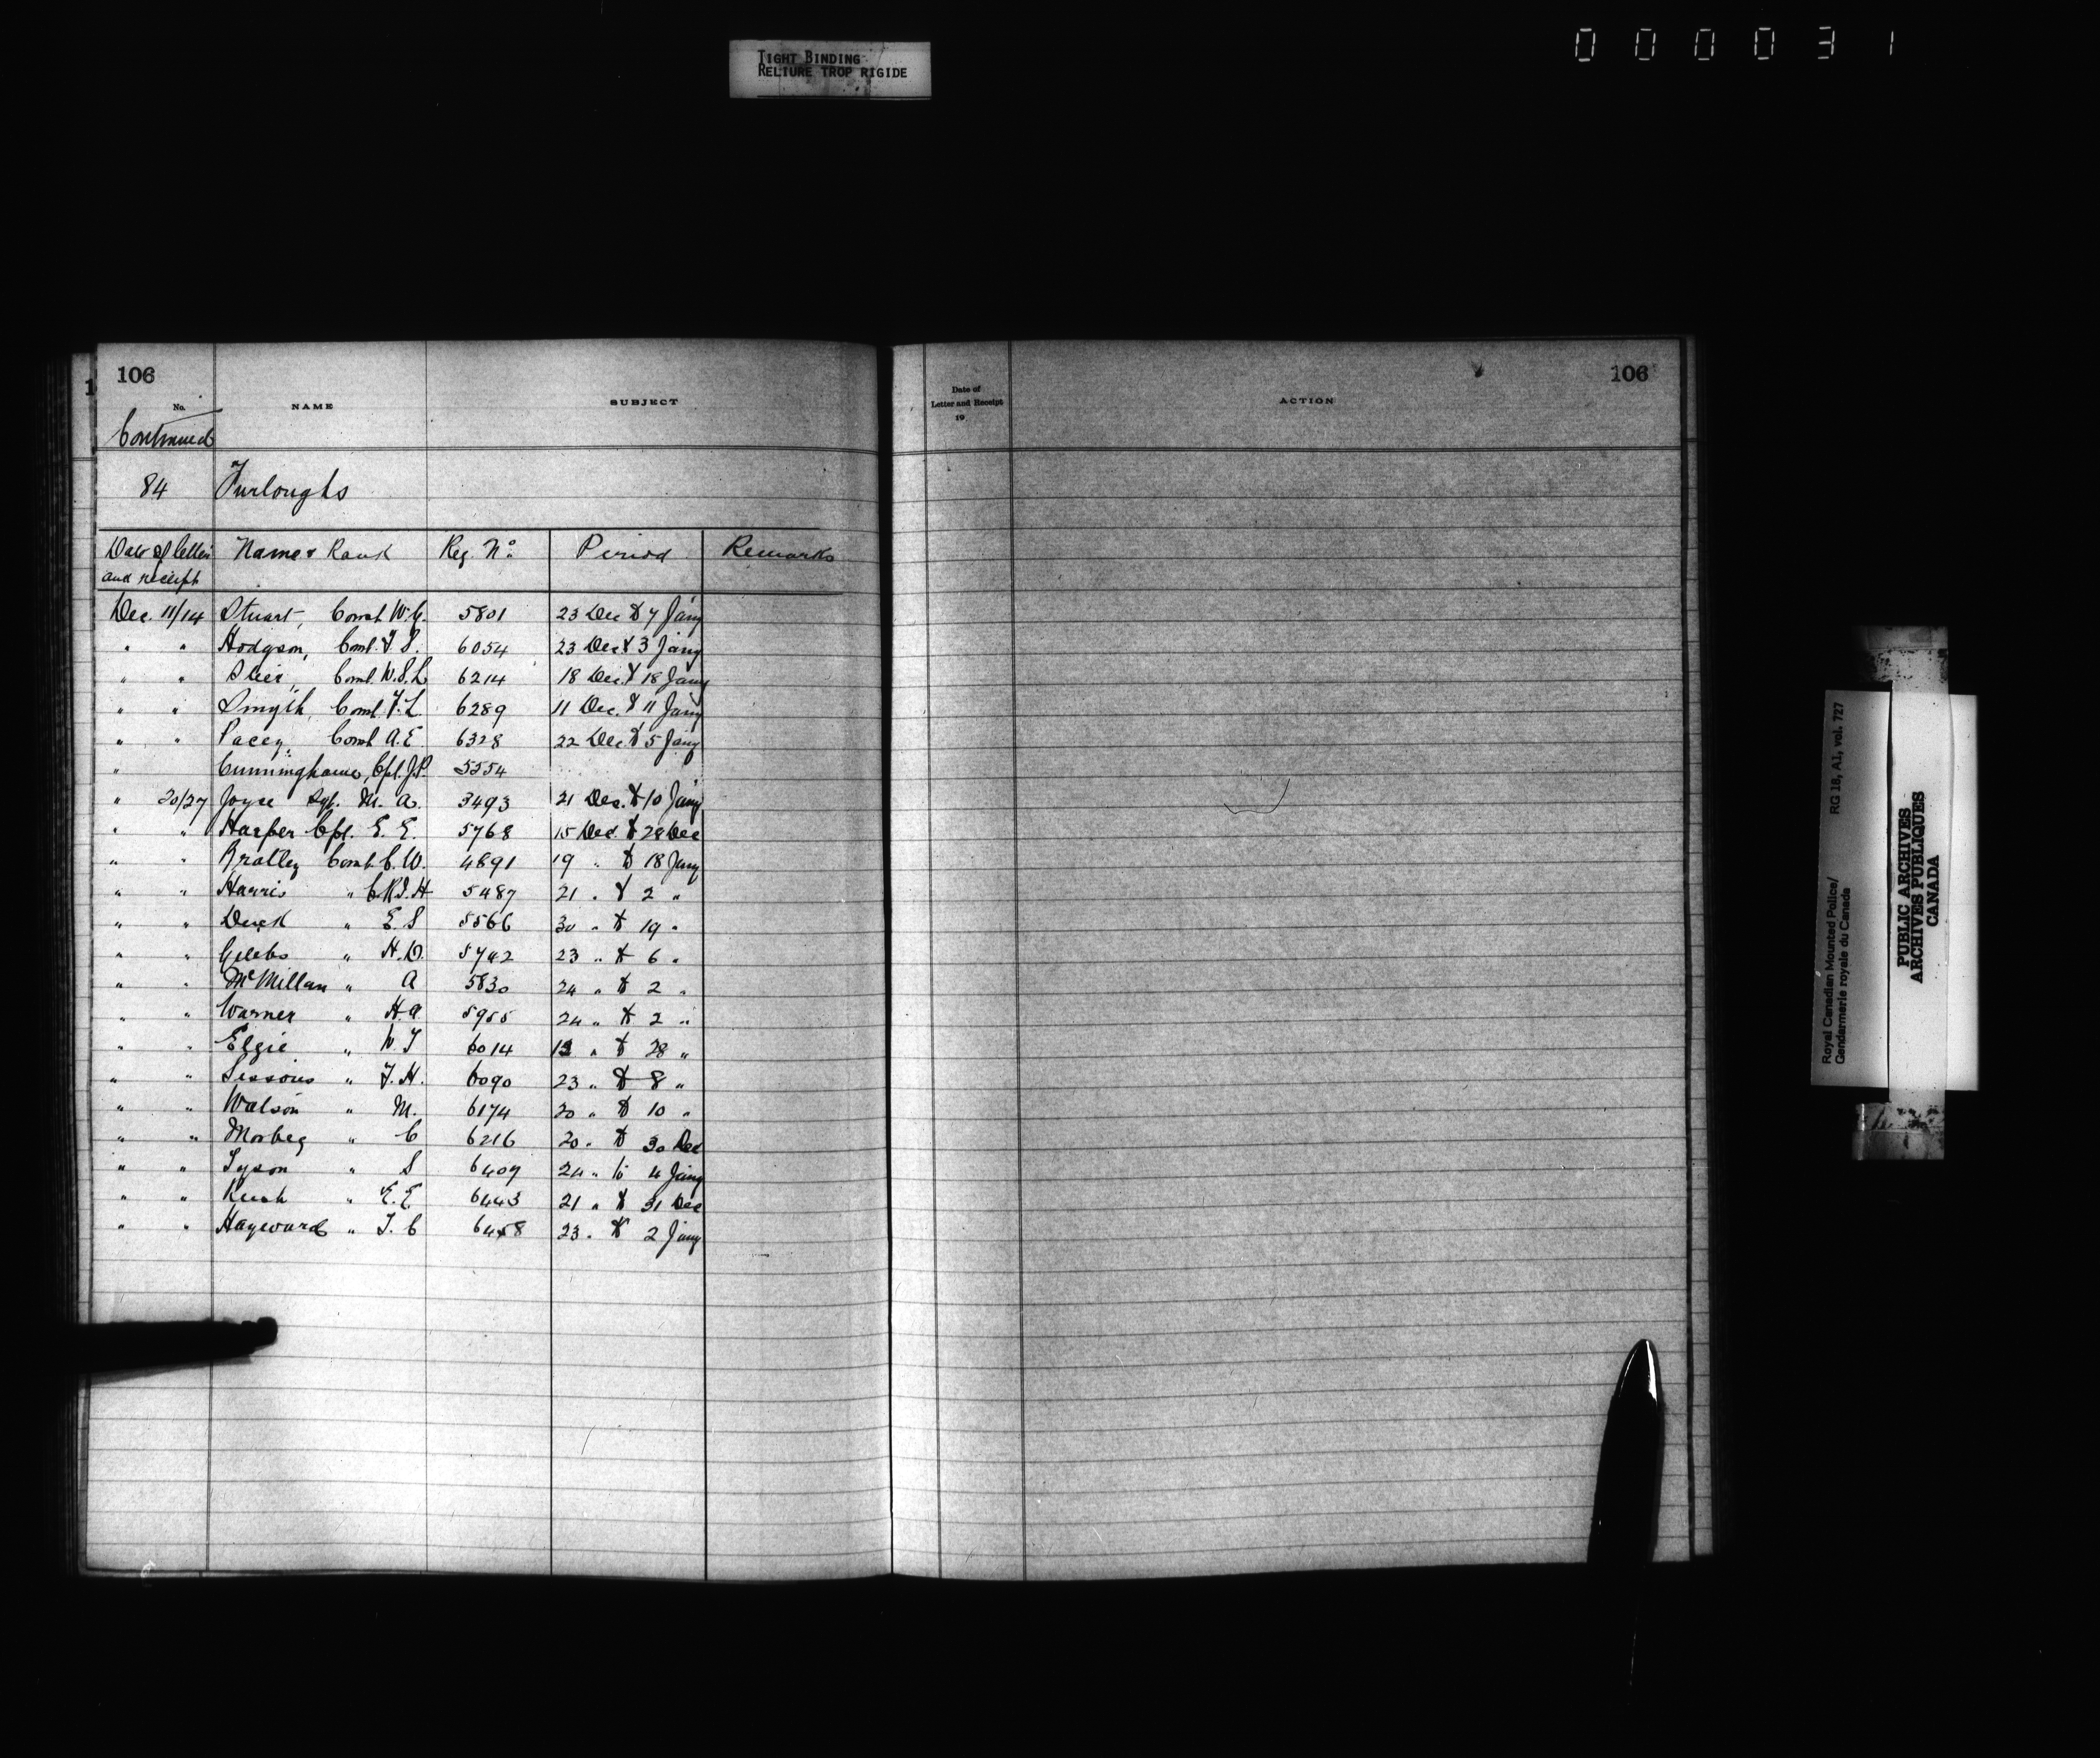 TIGHT BINDING
RELIURE TROP RIGIDE
000031
106
No. NAME SUBJECT
Continued
84 Furloughs
Date of letter and receipt Name & Rank Reg. No. Period Remarks
Dec. 11/14 Stuart, Const. W.C. 5801 23 Dec to 7 Jany
" " Hodgson, Const. 6054 23 Dec to 3 Jany
" " Const. 6214 18 Dec. to 18 Jany
" " Smyth, Const. F.L. 6289 11 Dec. to 11 Jany
" " Pacey, Const A.E 6328 22 Dec. to 5 Jany
" Cunninghame, Cpl. J.P. 5554
" 20/27 Joyce Sgt. M. A. 3493 21 Dec. to 10 Jany
" " Harper Cpl. E. E. 5768 15 Dec. to 28 Dec
" " Const. C.W. 4891 19 " to 18 Jany
" " Harris " 5487 21 " to 2 "
" " " E. S 5566 30 " to 19 "
" " " H.D. 5742 23 " to 6 "
" " McMillan " A 5830 24 " to 2 "
" " Warner " H.A. 5955 24 " to 2 "
" " Elgie " 6014 " to 28 "
" " Sissons " F.H. 6090 23 " to 8 "
" " Watson " M. 6174 20 " to 10 "
" " Morbey " C 6216 20 " to 30 Dec
" " Tyson " S 6409 24 " to 4 Jany
" " " E.E 6443 21 " to 31 Dec
" " Hayward " T. C 6458 23 " to 2 Jany
Date of
Letter and Receipt
19
ACTION
106
Royal Canadian Mounted Police/ RG 18, A1, vol. 727
Gendarmerie royale du Canada
PUBLIC ARCHIVES
ARCHIVES PUBLIQUES
CANADA